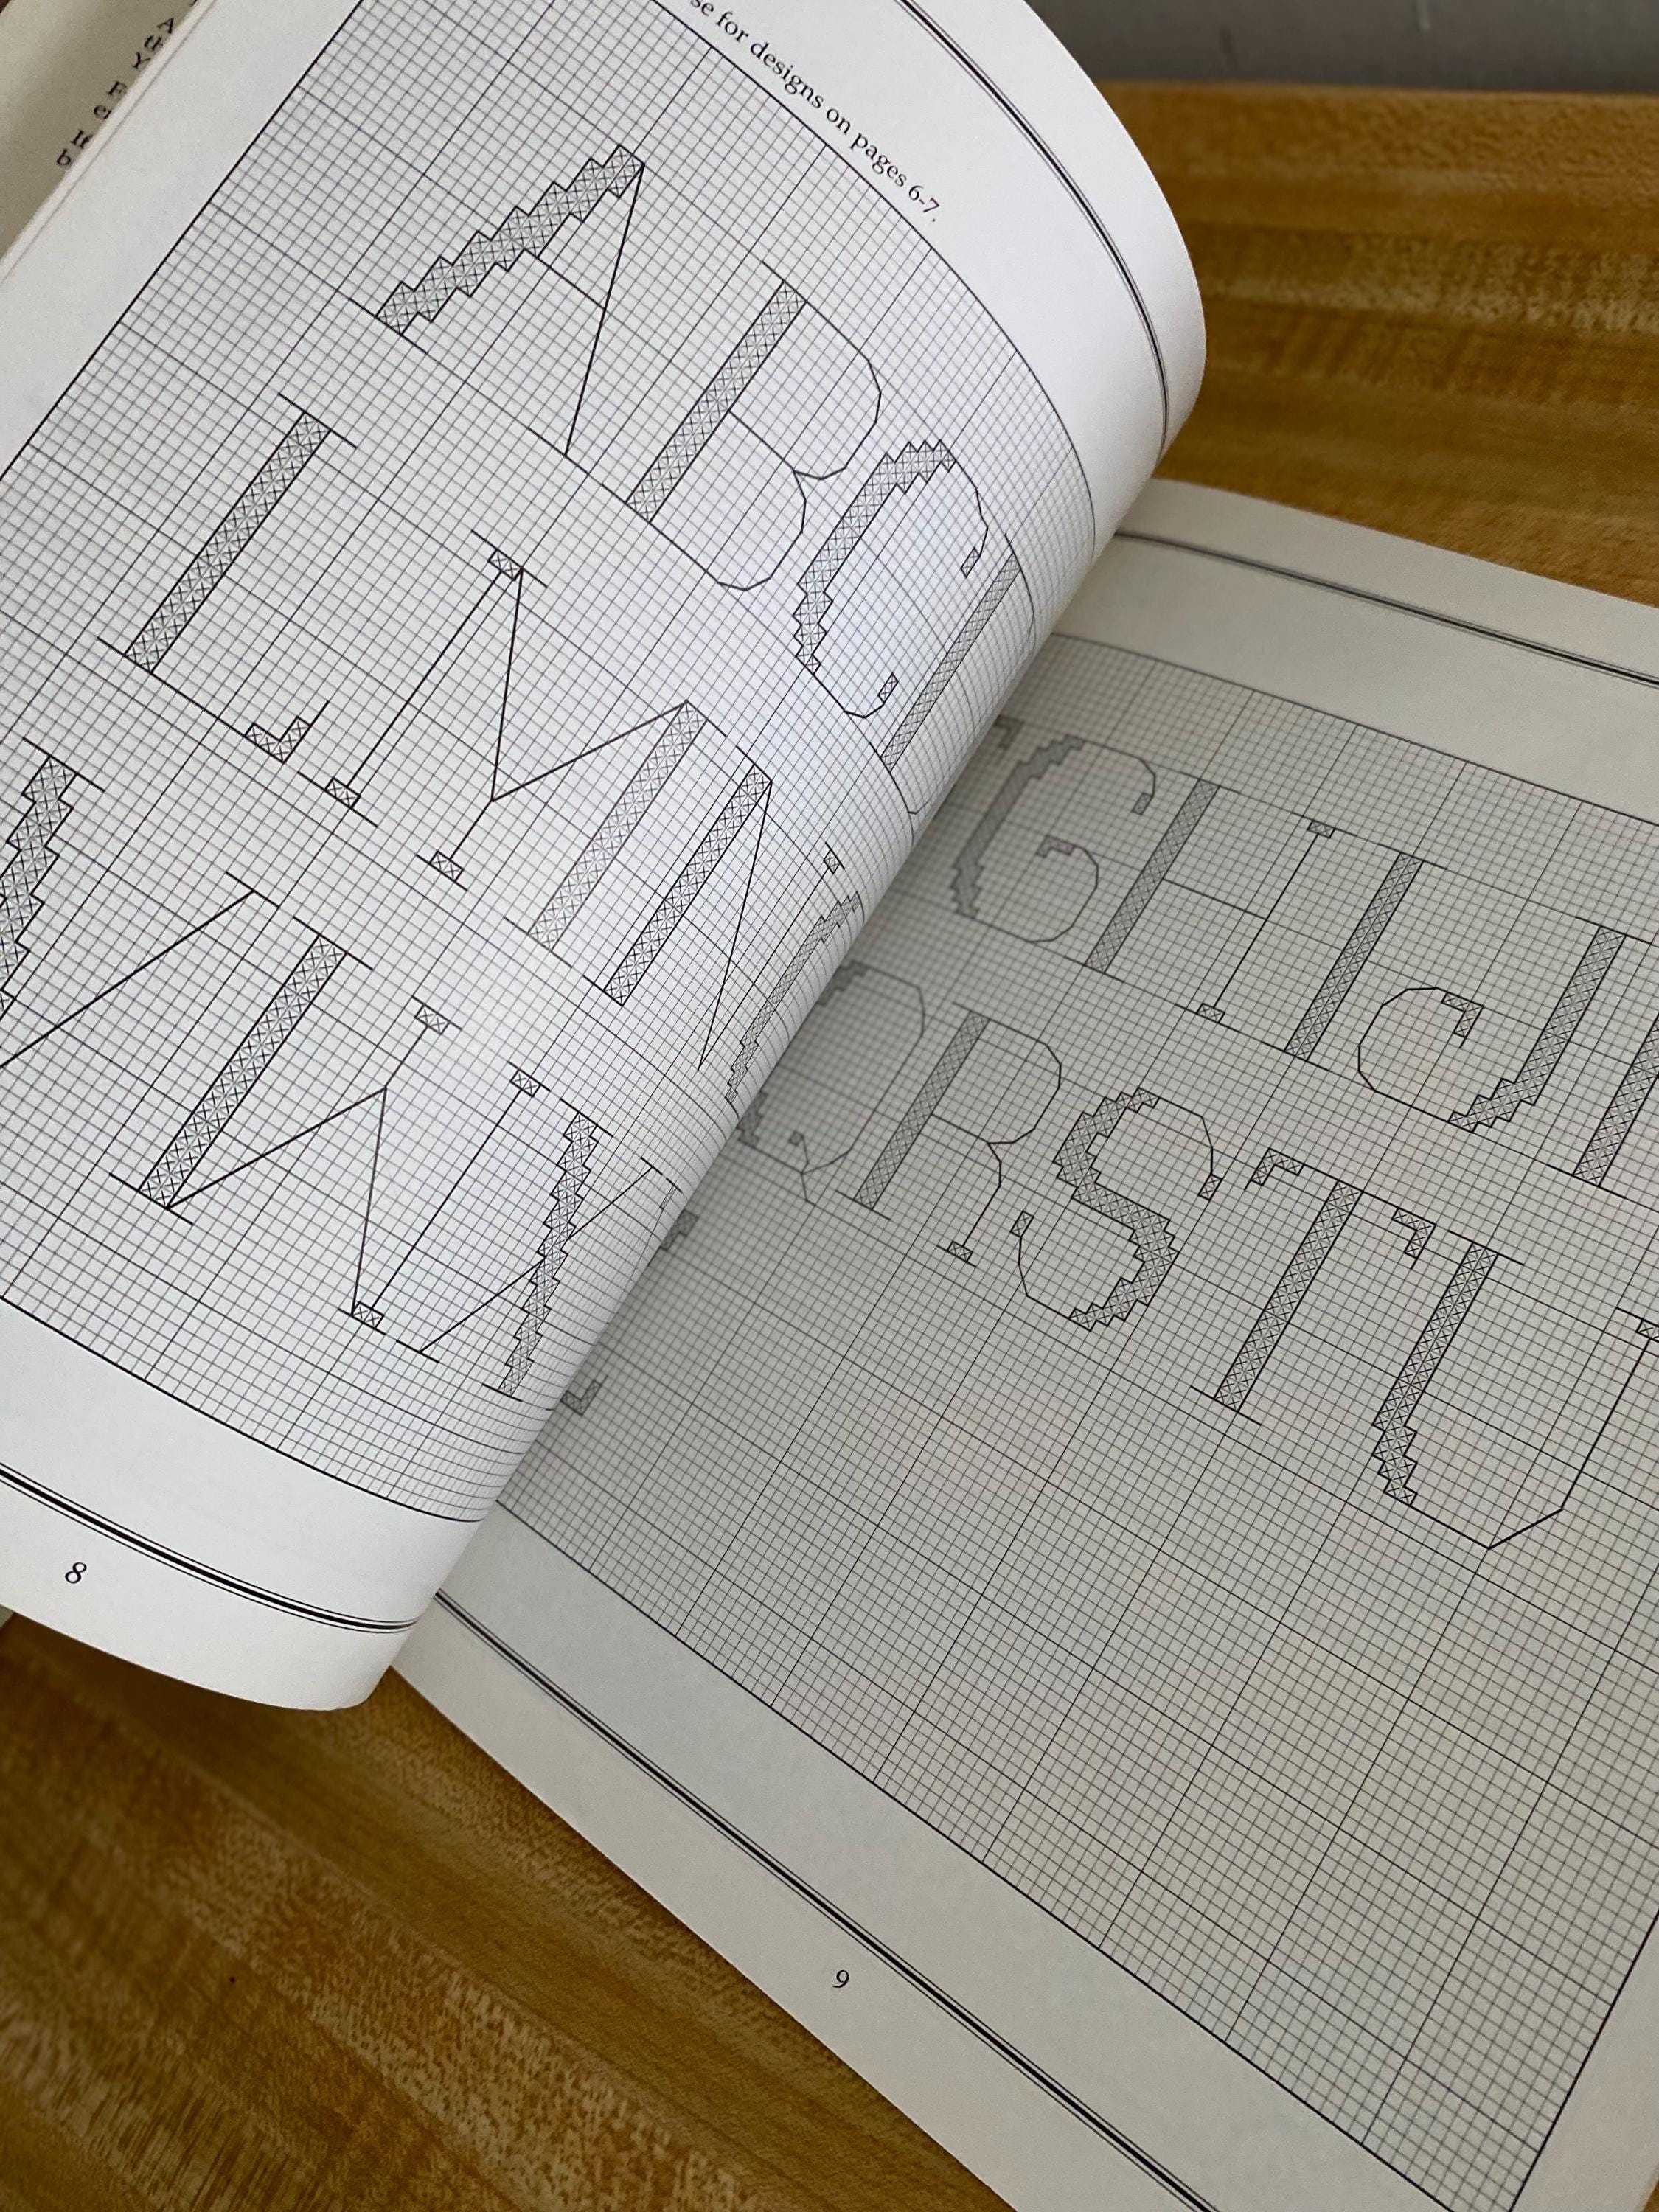 se for designs on pages 6-7.
A B C D
L M N
V W X
8
G H I J
Q R S T U
9